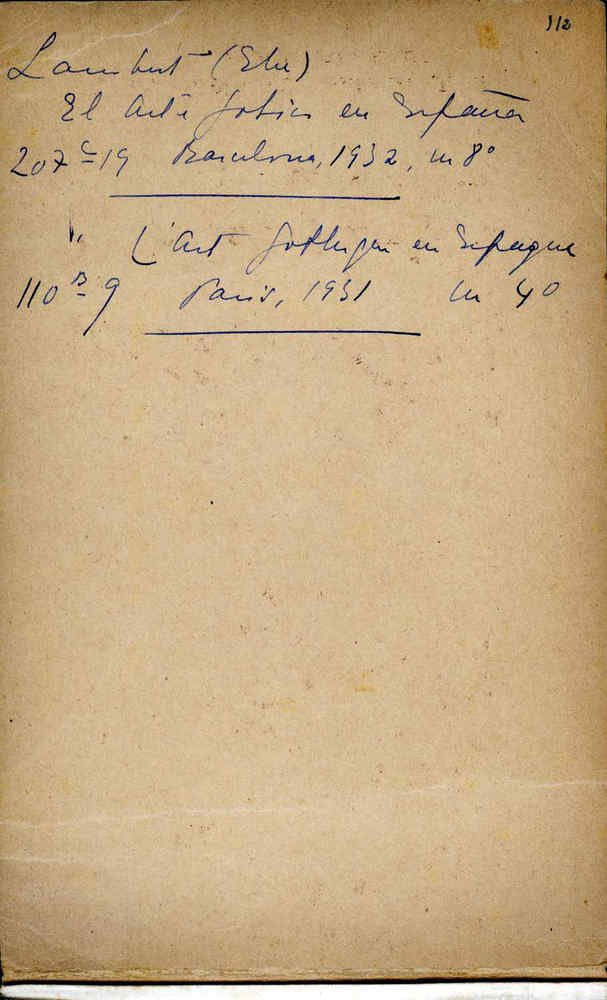 312
Lambert (Elie)
El Arte gotico en España
207 C-19 Barcelona, 1932, in 8º
". L'Art Gothique en Espagne
110 B-9 Paris, 1931 in 4º